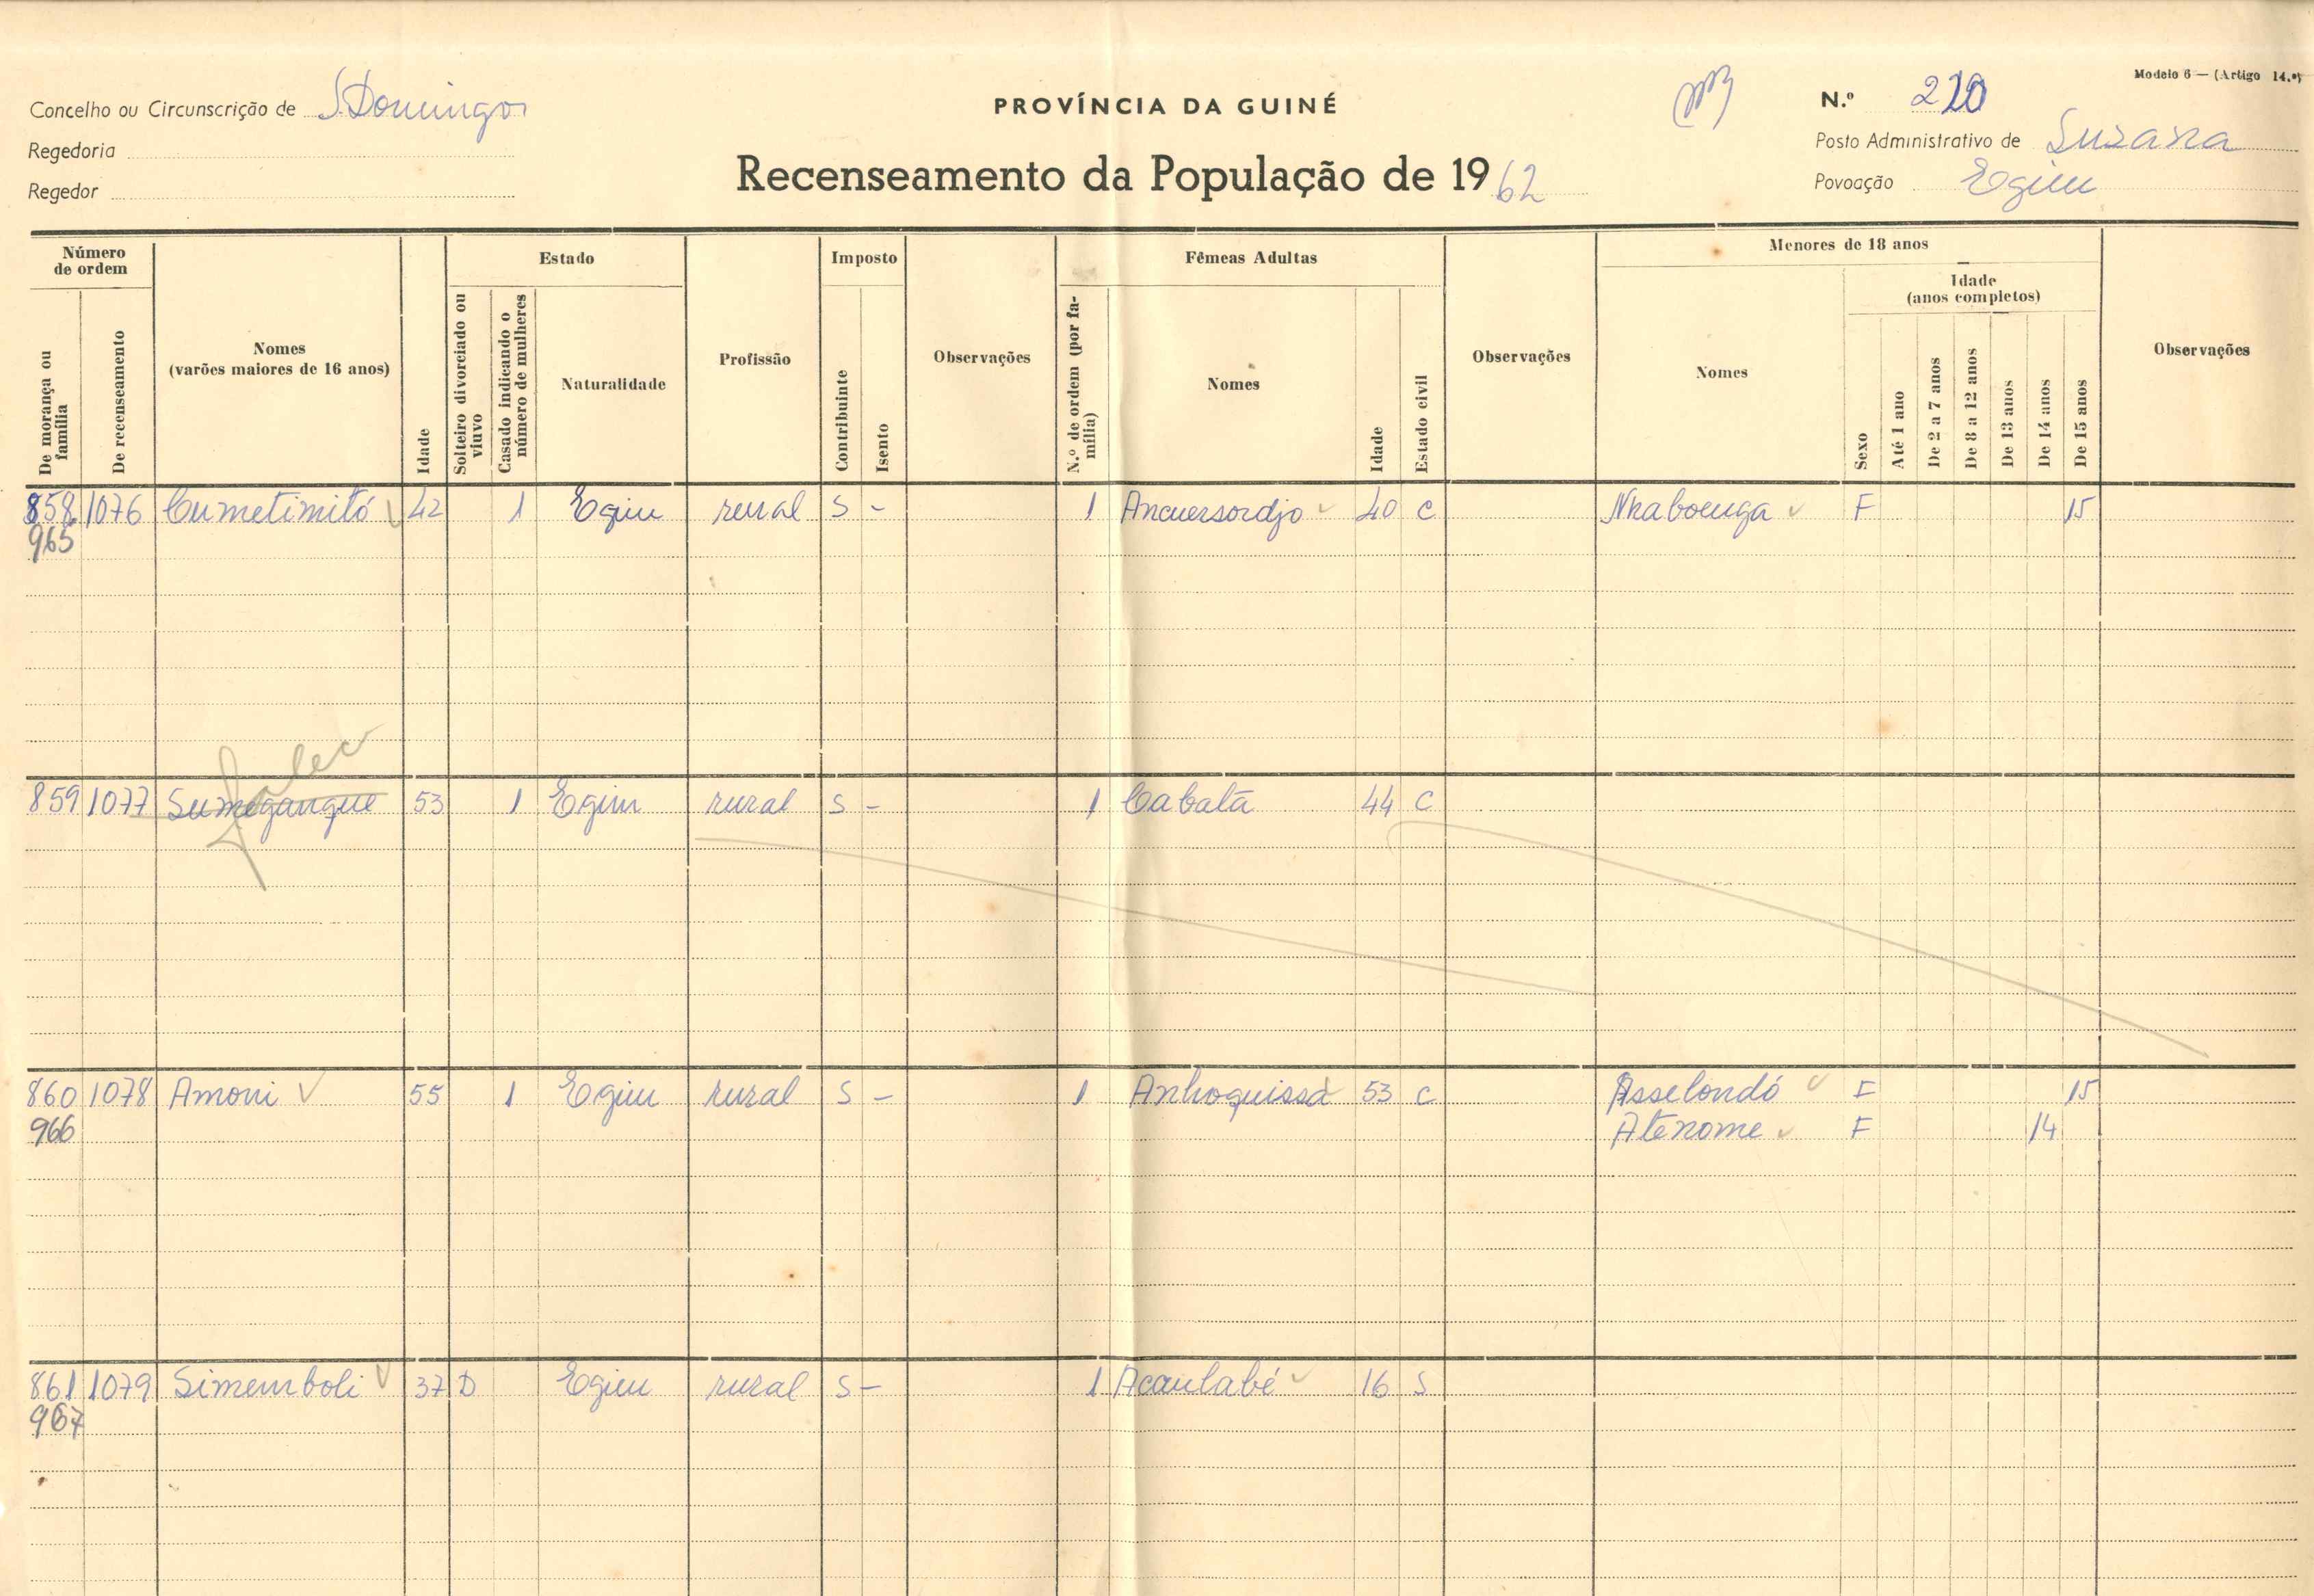 Modelo 6 — (Artigo 14.º)
Concelho ou Circunscrição de S. Domingos
PROVÍNCIA DA GUINÉ
N.º 220
Regedoria
Posto Administrativo de Suzana
Regedor
Recenseamento da População de 1962
Povoação Egim
Número de ordem
De morança ou família
De recenseamento
Nomes (varões maiores de 16 anos)
Idade
Estado
Solteiro divorciado ou viuvo
Casado indicando o número de mulheres
Naturalidade
Profissão
Imposto
Contribuinte
Isento
Observações
Fêmeas Adultas
N.º de ordem (por família)
Nomes
Idade
Estado civil
Observações
Menores de 18 anos
Nomes
Sexo
Idade (anos completos)
Até 1 ano
De 2 a 7 anos
De 8 a 12 anos
De 13 anos
De 14 anos
De 15 anos
Observações
858 1076 Cumetimitó 42 1 Egim rural S - 1 Ancuersordjo 40 C Nhaboenga F 15
965
falec
859 1077 Sumegangue 53 1 Egim rural S - 1 Cabatã 44 C
860 1078 Amoni 55 1 Egim rural S - 1 Anhoquissá 53 C Asselondó F 15
966 Atenome F 14
861 1079 Simemboli 37 D Egim rural S - 1 Acaulabé 16 S
967